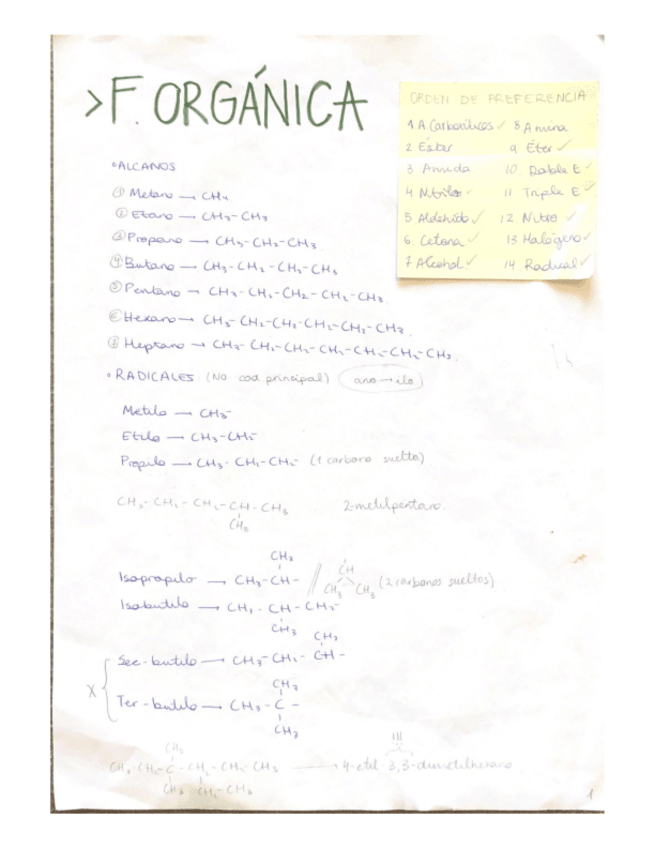 >F. ORGÁNICA
ORDEN DE PREFERENCIA
1 A. Carboxílicos ✓ 8 Amina
2 Éster 9 Éter ✓
3 Amida 10 Doble E ✓
4 Nitrilo 11 Triple E ✓
5 Aldehído ✓ 12 Nitro ✓
6. Cetona ✓ 13 Halógeno ✓
7 Alcohol ✓ 14 Radical ✓
• ALCANOS
① Metano → CH₄
② Etano → CH₃-CH₃
③ Propano → CH₃-CH₂-CH₃
④ Butano → CH₃-CH₂-CH₂-CH₃
⑤ Pentano → CH₃-CH₂-CH₂-CH₂-CH₃
Hexano → CH₃-CH₂-CH₂-CH₂-CH₂-CH₃.
Heptano → CH₃-CH₂-CH₂-CH₂-CH₂-CH₂-CH₃.
• RADICALES (No cad principal) ano → ilo
Metilo → CH₃-
Etilo → CH₃-CH₂-
Propilo → CH₃-CH₂-CH₂- (1 carbono suelto)
CH₃-CH₂-CH₂-CH-CH₃ 2-metilpentano.
CH₃
CH₃
Isopropilo → CH₃-CH- // CH (2 carbonos sueltos)
CH₃ CH₃
Isobutilo → CH₃-CH-CH₂-
CH₃
CH₃
Sec-butilo → CH₃-CH₂-CH-
X
CH₃
Ter-butilo → CH₃-C-
CH₃
CH₃
CH₃-CH₂-C-CH-CH₂-CH₃ → 4-etil-3,3-dimetilhexano
CH₃ CH₂-CH₃
1